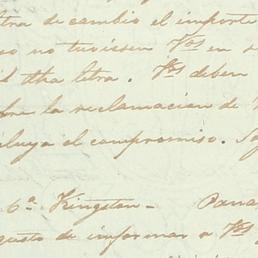 tra de cambio el importe
no tuviesen Vos en se
dha letra. Vos deben
la reclamacion de
luya el compromiso.
6ª Kingston - Pana
gusto de informar a Vos